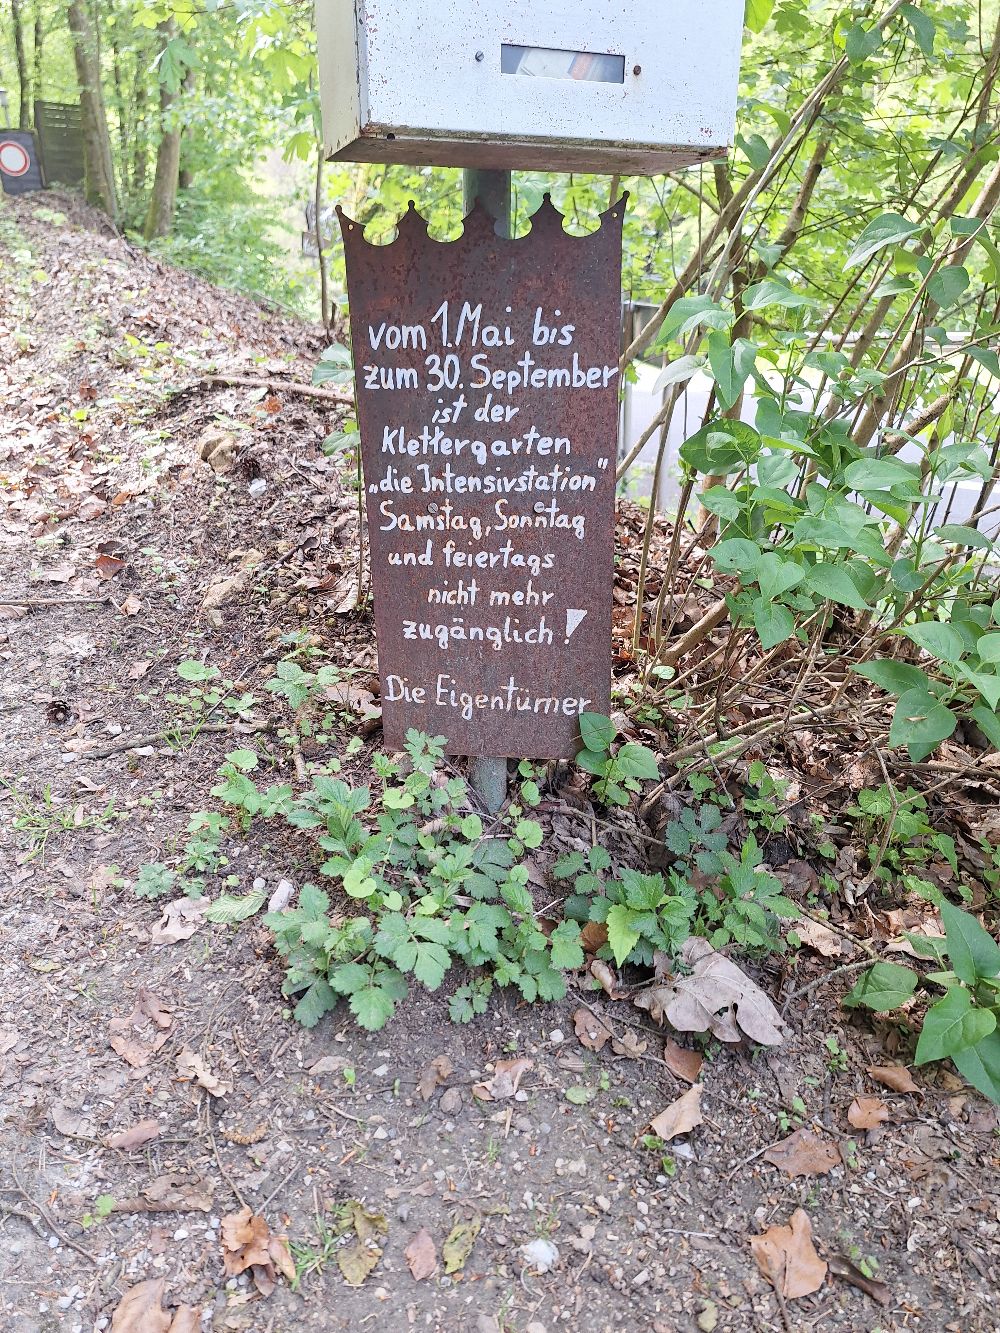 vom 1. Mai bis
zum 30. September
ist der
Klettergarten
„die Intensivstation"
Samstag, Sonntag
und feiertags
nicht mehr
zugänglich!
Die Eigentümer